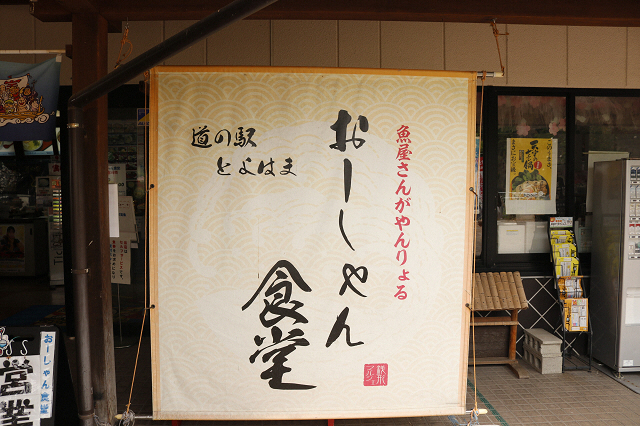 魚屋さんがやんりょる
おーしゃん
食堂
道の駅
とよはま
おーしゃん食堂
営業